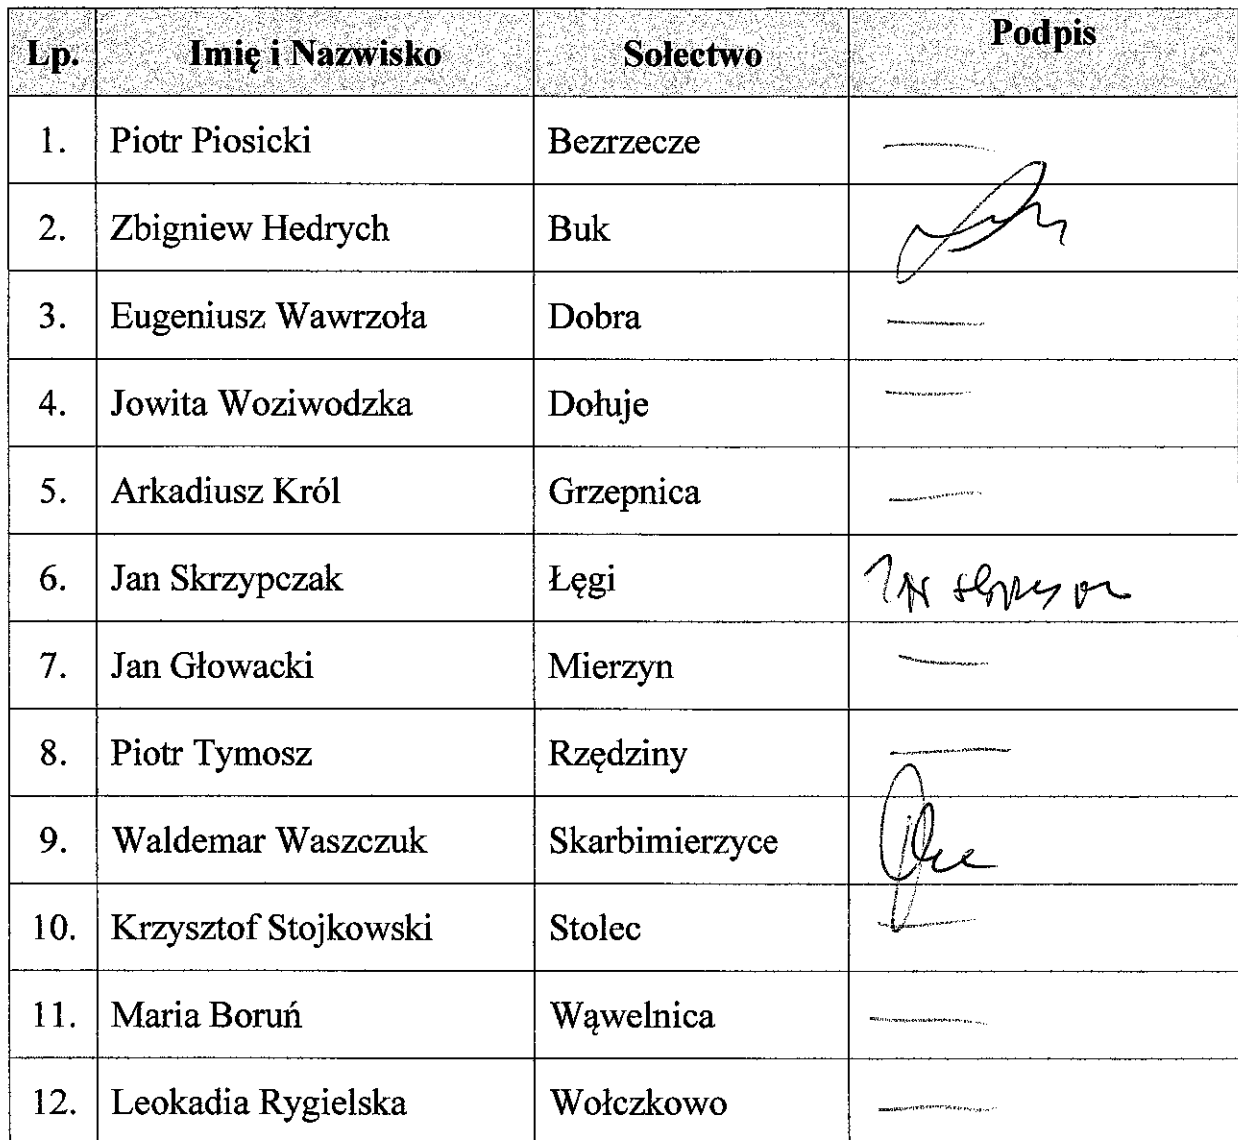 Lp. Imię i Nazwisko Sołectwo Podpis
1. Piotr Piosicki Bezrzecze —
2. Zbigniew Hedrych Buk
3. Eugeniusz Wawrzoła Dobra —
4. Jowita Woziwodzka Dołuje —
5. Arkadiusz Król Grzepnica —
6. Jan Skrzypczak Łęgi
7. Jan Głowacki Mierzyn —
8. Piotr Tymosz Rzędziny —
9. Waldemar Waszczuk Skarbimierzyce
10. Krzysztof Stojkowski Stolec —
11. Maria Boruń Wąwelnica —
12. Leokadia Rygielska Wołczkowo —